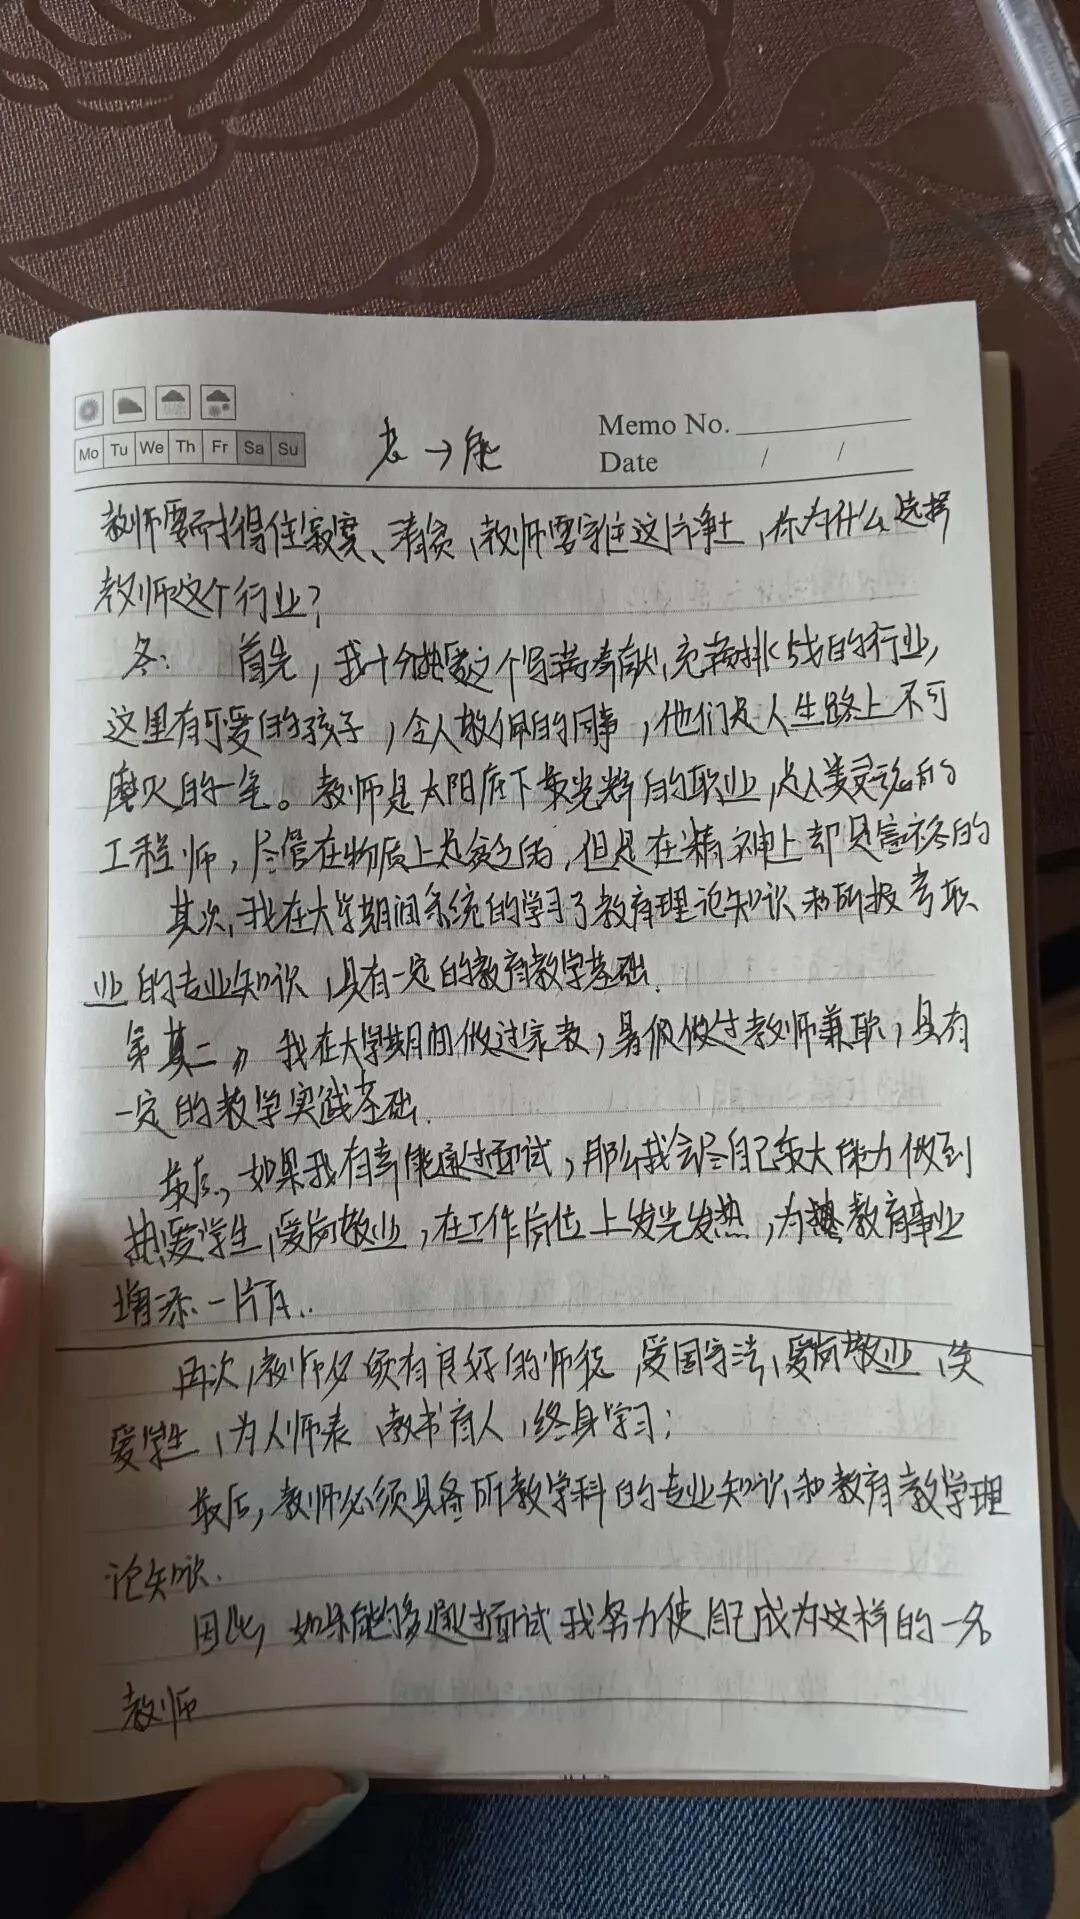 Mo Tu We Th Fr Sa Su
Memo No.
Date / /
教师要耐得住寂寞、清贫,教师要守住这片净土,你为什么选择
教师这个行业?
答: 首先,我十分热爱这个写满奉献,充满挑战的行业,
这里有可爱的孩子,令人敬佩的同事,他们是人生路上不可
磨灭的一笔。教师是太阳底下最光辉的职业,是人类灵魂的
工程师,尽管在物质上是贫乏的,但是在精神上却是富裕的
其次,我在大学期间系统的学习了教育理论知识和所报考职
业的专业知识,具有一定的教育教学基础.
第其二,我在大学期间做过家教,暑假做过教师兼职,具有
一定的教学实践基础.
最后,如果我有幸能通过面试,那么我会尽自己最大能力做到
热爱学生,爱岗敬业,在工作岗位上发光发热,为教育事业
增添一片瓦..
再次,教师必须有良好的师德,爱国守法,爱岗敬业,关
爱学生,为人师表,教书育人,终身学习;
最后,教师必须具备所教学科的专业知识和教育教学理
论知识.
因此,如果能够通过面试我努力使自己成为这样的一名
教师